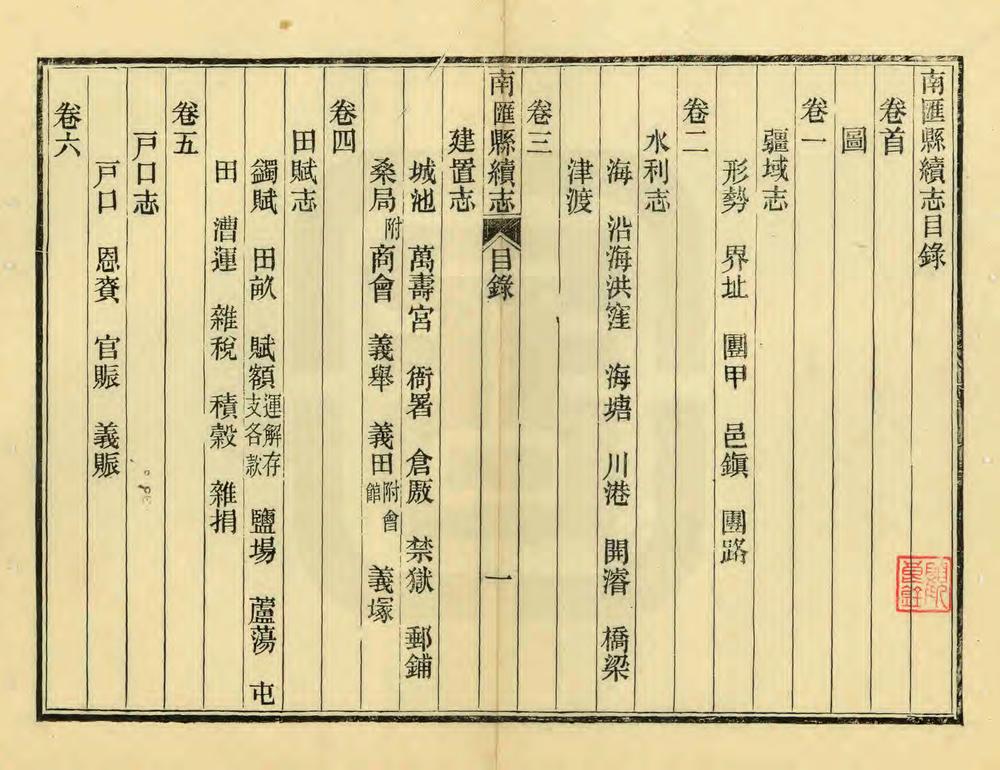 南匯縣續志目錄
卷首
圖
卷一
疆域志
形勢 界址 團甲 邑鎭 團路
卷二
水利志
海 沿海洪窪 海塘 川港 開濬 橋梁
津渡
卷三
南匯縣續志 目錄 一
建置志
城池 萬壽宮 衙署 倉廒 禁獄 郵鋪
桑局附商會 義舉 義田附會館 義塚
卷四
田賦志
蠲賦 田畝 賦額運解存支各款 鹽場 蘆蕩 屯
田 漕運 雜稅 積穀 雜捐
卷五
戸口志
戸口 恩賚 官賑 義賑
卷六